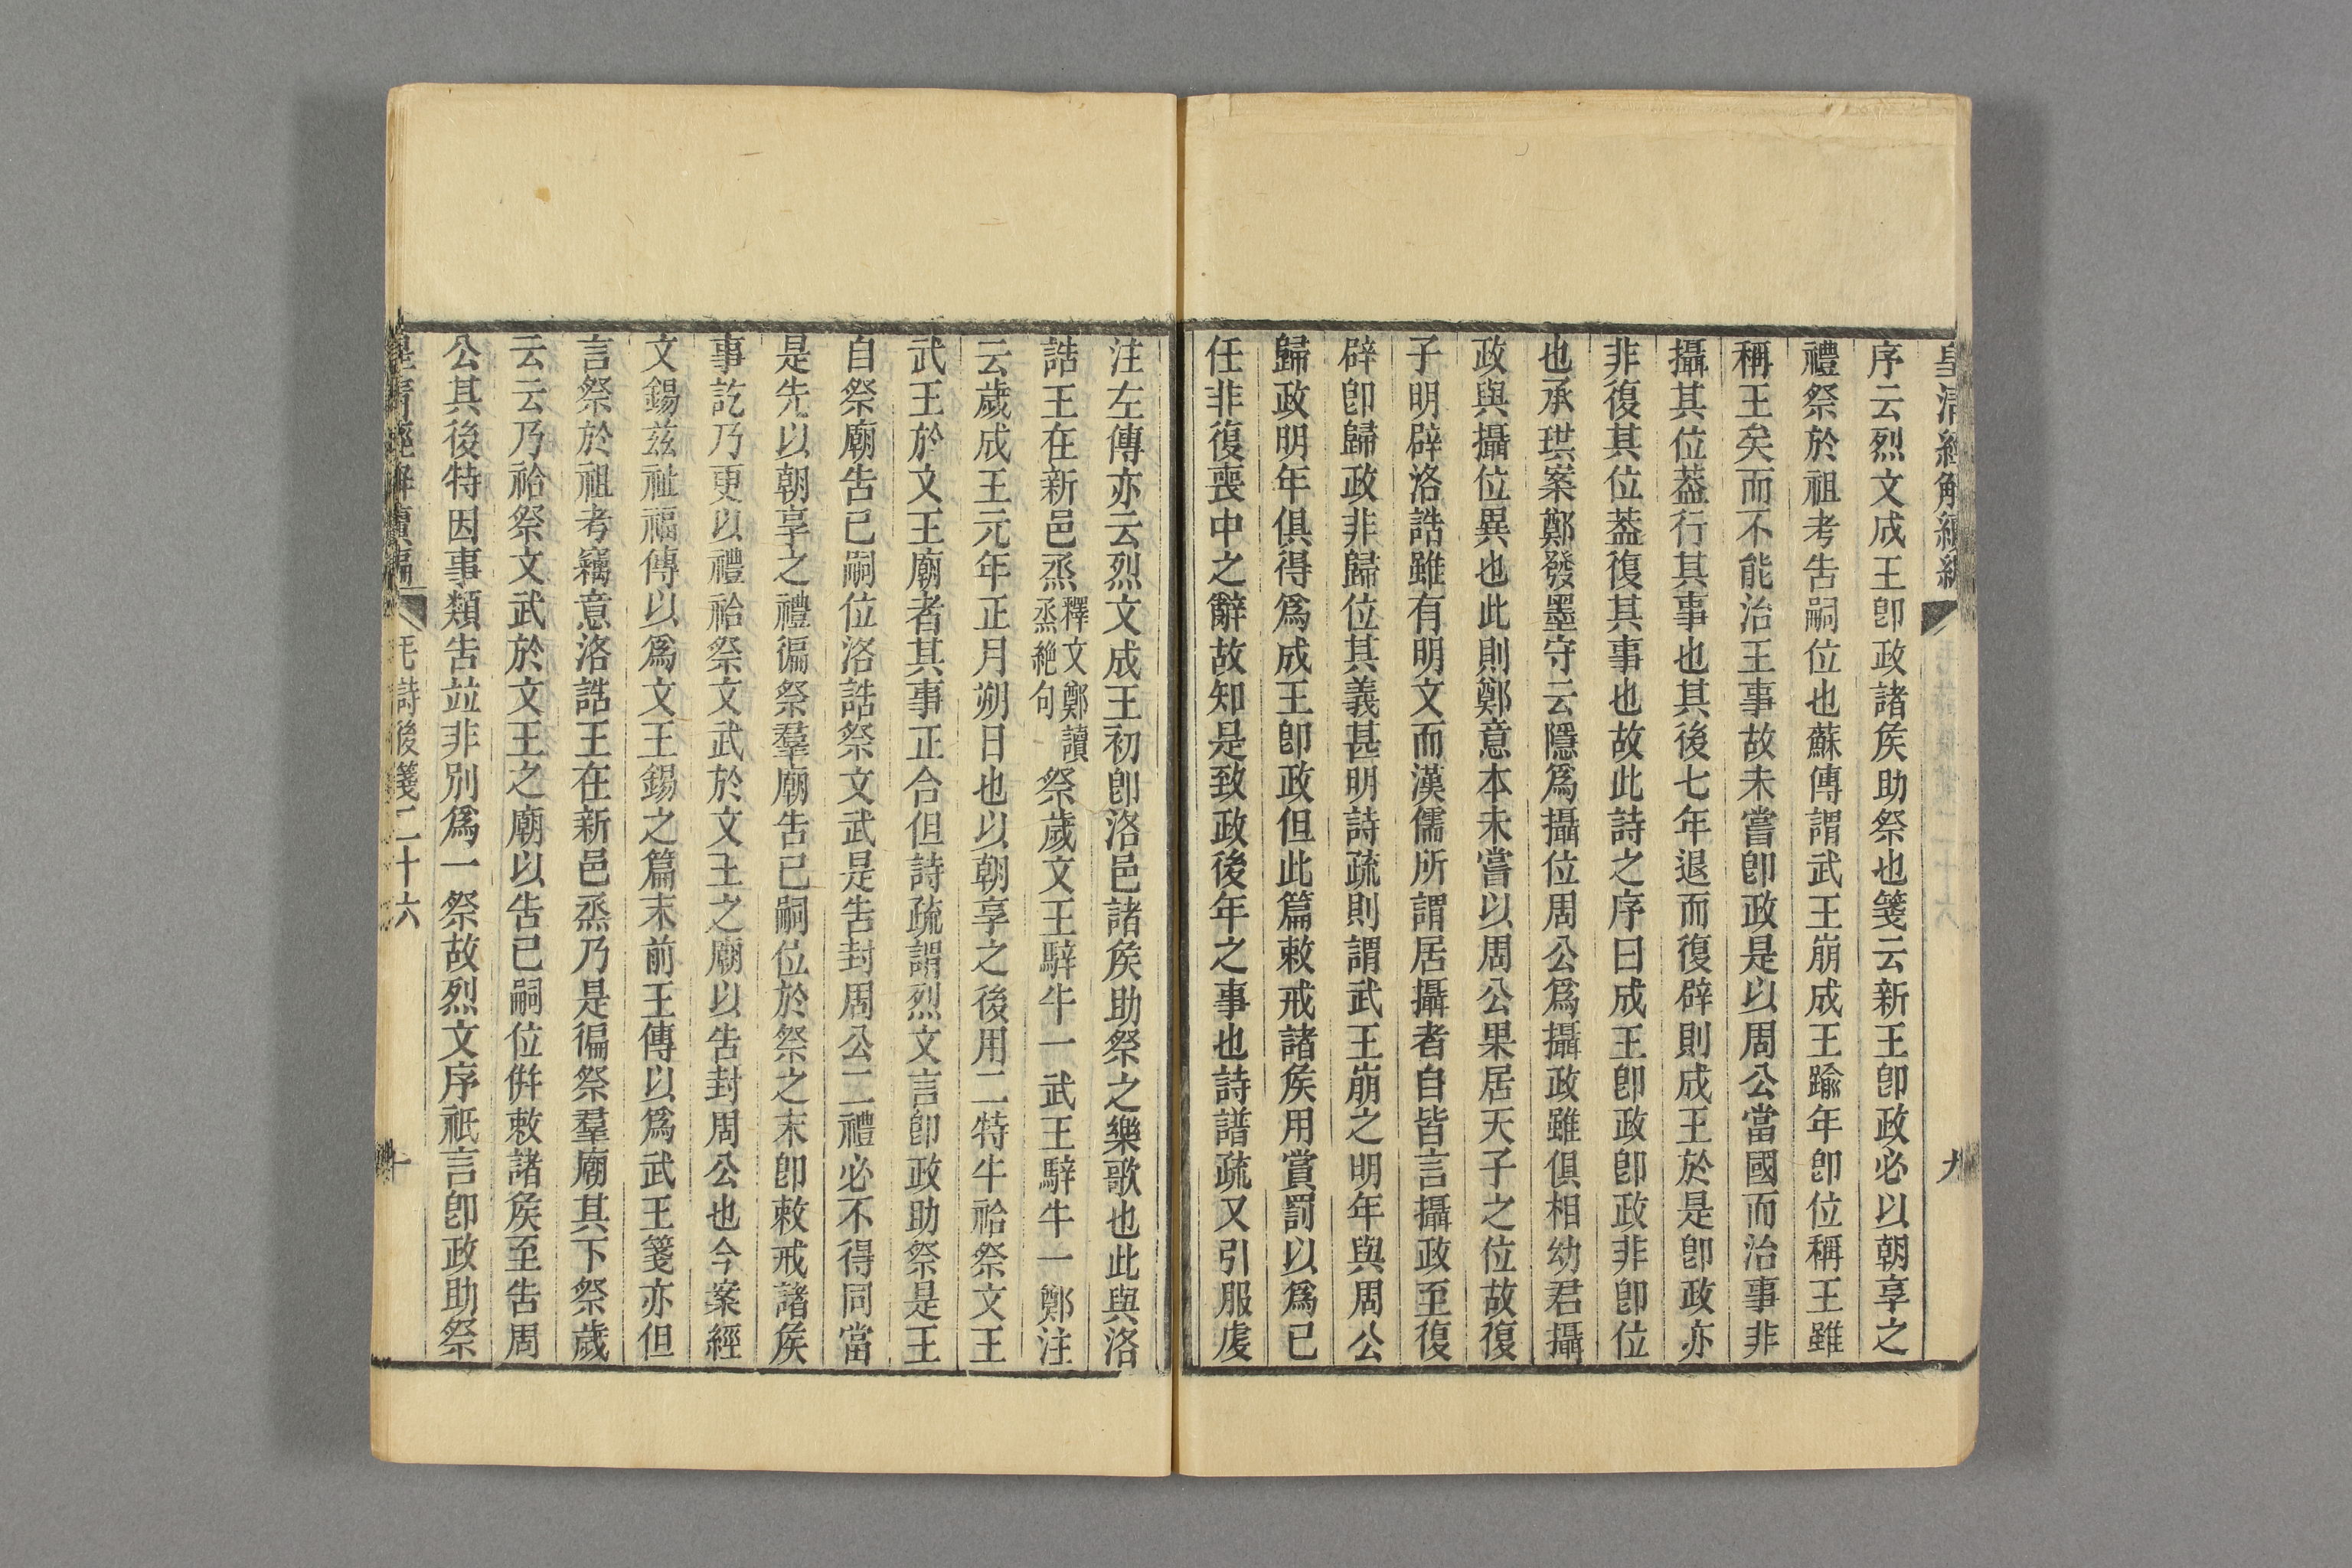 皇清經解續編
九
序云烈文成王卽政諸矦助祭也箋云新王卽政必以朝享之
禮祭於祖考告嗣位也蘇傳謂武王崩成王踰年卽位稱王雖
稱王矣而不能治王事故未嘗卽政是以周公當國而治事非
攝其位葢行其事也其後七年退而復辟則成王於是卽政亦
非復其位葢復其事也故此詩之序曰成王卽政卽政非卽位
也承珙案鄭發墨守云隱爲攝位周公爲攝政雖俱相幼君攝
政與攝位異也此則鄭意本未嘗以周公果居天子之位故復
子明辟洛誥雖有明文而漢儒所謂居攝者自皆言攝政至復
辟卽歸政非歸位其義甚明詩疏則謂武王崩之明年與周公
歸政明年俱得爲成王卽政但此篇敕戒諸矦用賞罰以爲己
任非復喪中之辭故知是致政後年之事也詩譜疏又引服虔
注左傳亦云烈文成王初卽洛邑諸矦助祭之樂歌也此與洛
誥王在新邑烝釋文鄭讀烝絶句祭歲文王騂牛一武王騂牛一鄭注
云歲成王元年正月朔日也以朝享之後用二特牛祫祭文王
武王於文王廟者其事正合但詩疏謂烈文言卽政助祭是王
自祭廟告己嗣位洛誥祭文武是告封周公二禮必不得同當
是先以朝享之禮徧祭羣廟告己嗣位於祭之末卽敕戒諸矦
事訖乃更以禮祫祭文武於文王之廟以告封周公也今案經
文錫茲祉福傳以爲文王錫之篇末前王傳以爲武王箋亦但
言祭於祖考竊意洛誥王在新邑烝乃是徧祭羣廟其下祭歲
云云乃祫祭文武於文王之廟以告己嗣位倂敕諸矦至告周
公其後特因事類告竝非別爲一祭故烈文序祇言卽政助祭
皇清經解續編
毛詩後箋二十六
十